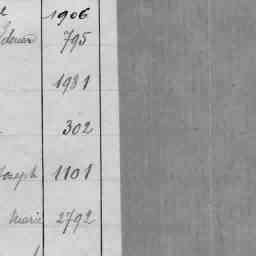 1906
795
1981
302
Joseph 1101
Marie 2792